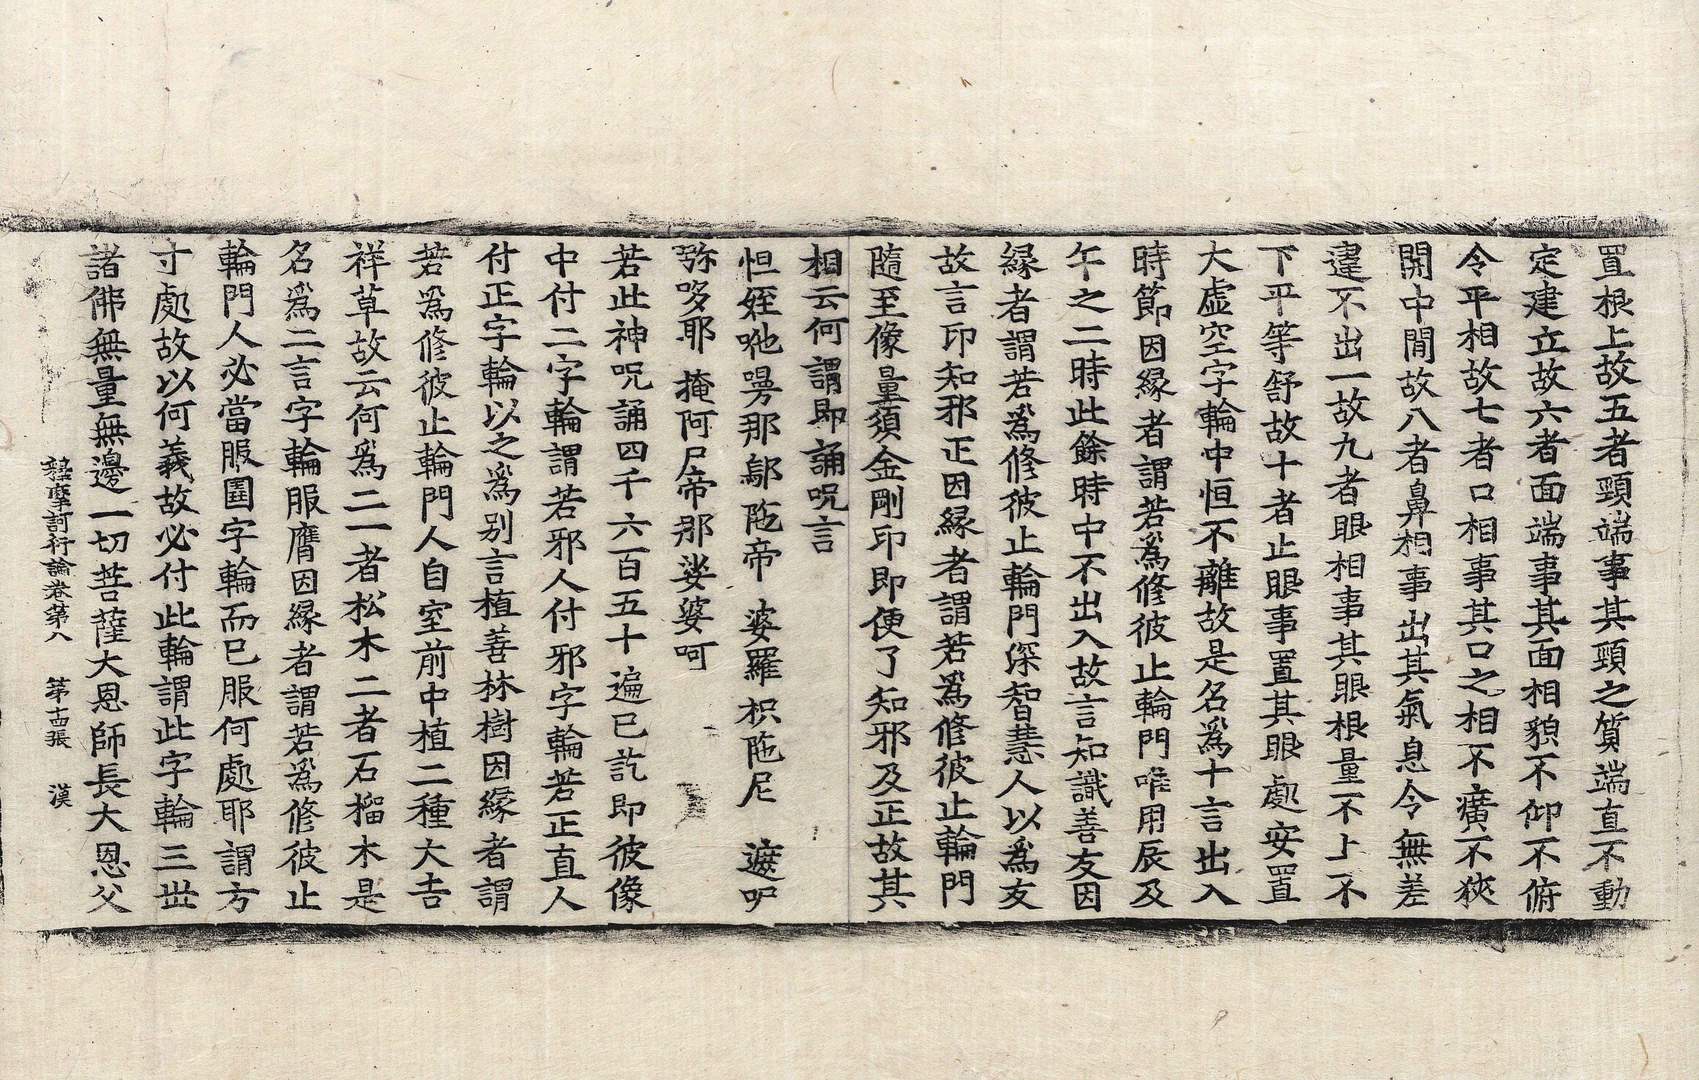 置根上故五者頸端事其頸之質端直不動
定建立故六者面端事其面相貌不仰不俯
令平相故七者口相事其口之相不癀不狹
開中閒故八者鼻相事出其氣息令無差
違不出一故九者眼相事其眼根量不上不
下平等舒故十者止眼事置其眼處安置
大虛空字輪中恒不離故是名爲十言出入
時節因緣者謂若爲修彼止輪門唯用辰及
午之二時此餘時中不出入故言知識善友因
緣者謂若爲修彼止輪門深智慧人以爲友
故言印知邪正因緣者謂若爲修彼止輪門
隨至像量須金剛印即便了知邪及正故其
相云何謂即誦呪言
怛姪咃㗊那鄔陁帝 婆羅枳陁尼 遮吖
弥哆耶 掩阿尸帝那 娑婆呵
若此神呪誦四千六百五十遍已訖即彼像
中付二字輪謂若邪人付邪字輪若正直人
付正字輪以之爲别言植善林樹因緣者謂
若爲修彼止輪門人自室前中植二種大吉
祥草故云何爲二一者松木二者石榴木是
名爲二言字輪服膺因緣者謂若爲修彼止
輪門人必當服圁字輪而已服何處耶謂方
寸處故以何義故必付此輪謂此字輪三世
諸佛無量無邊一切菩薩大恩師長大恩父
釋摩訶衍論卷第八 第十四張 漢